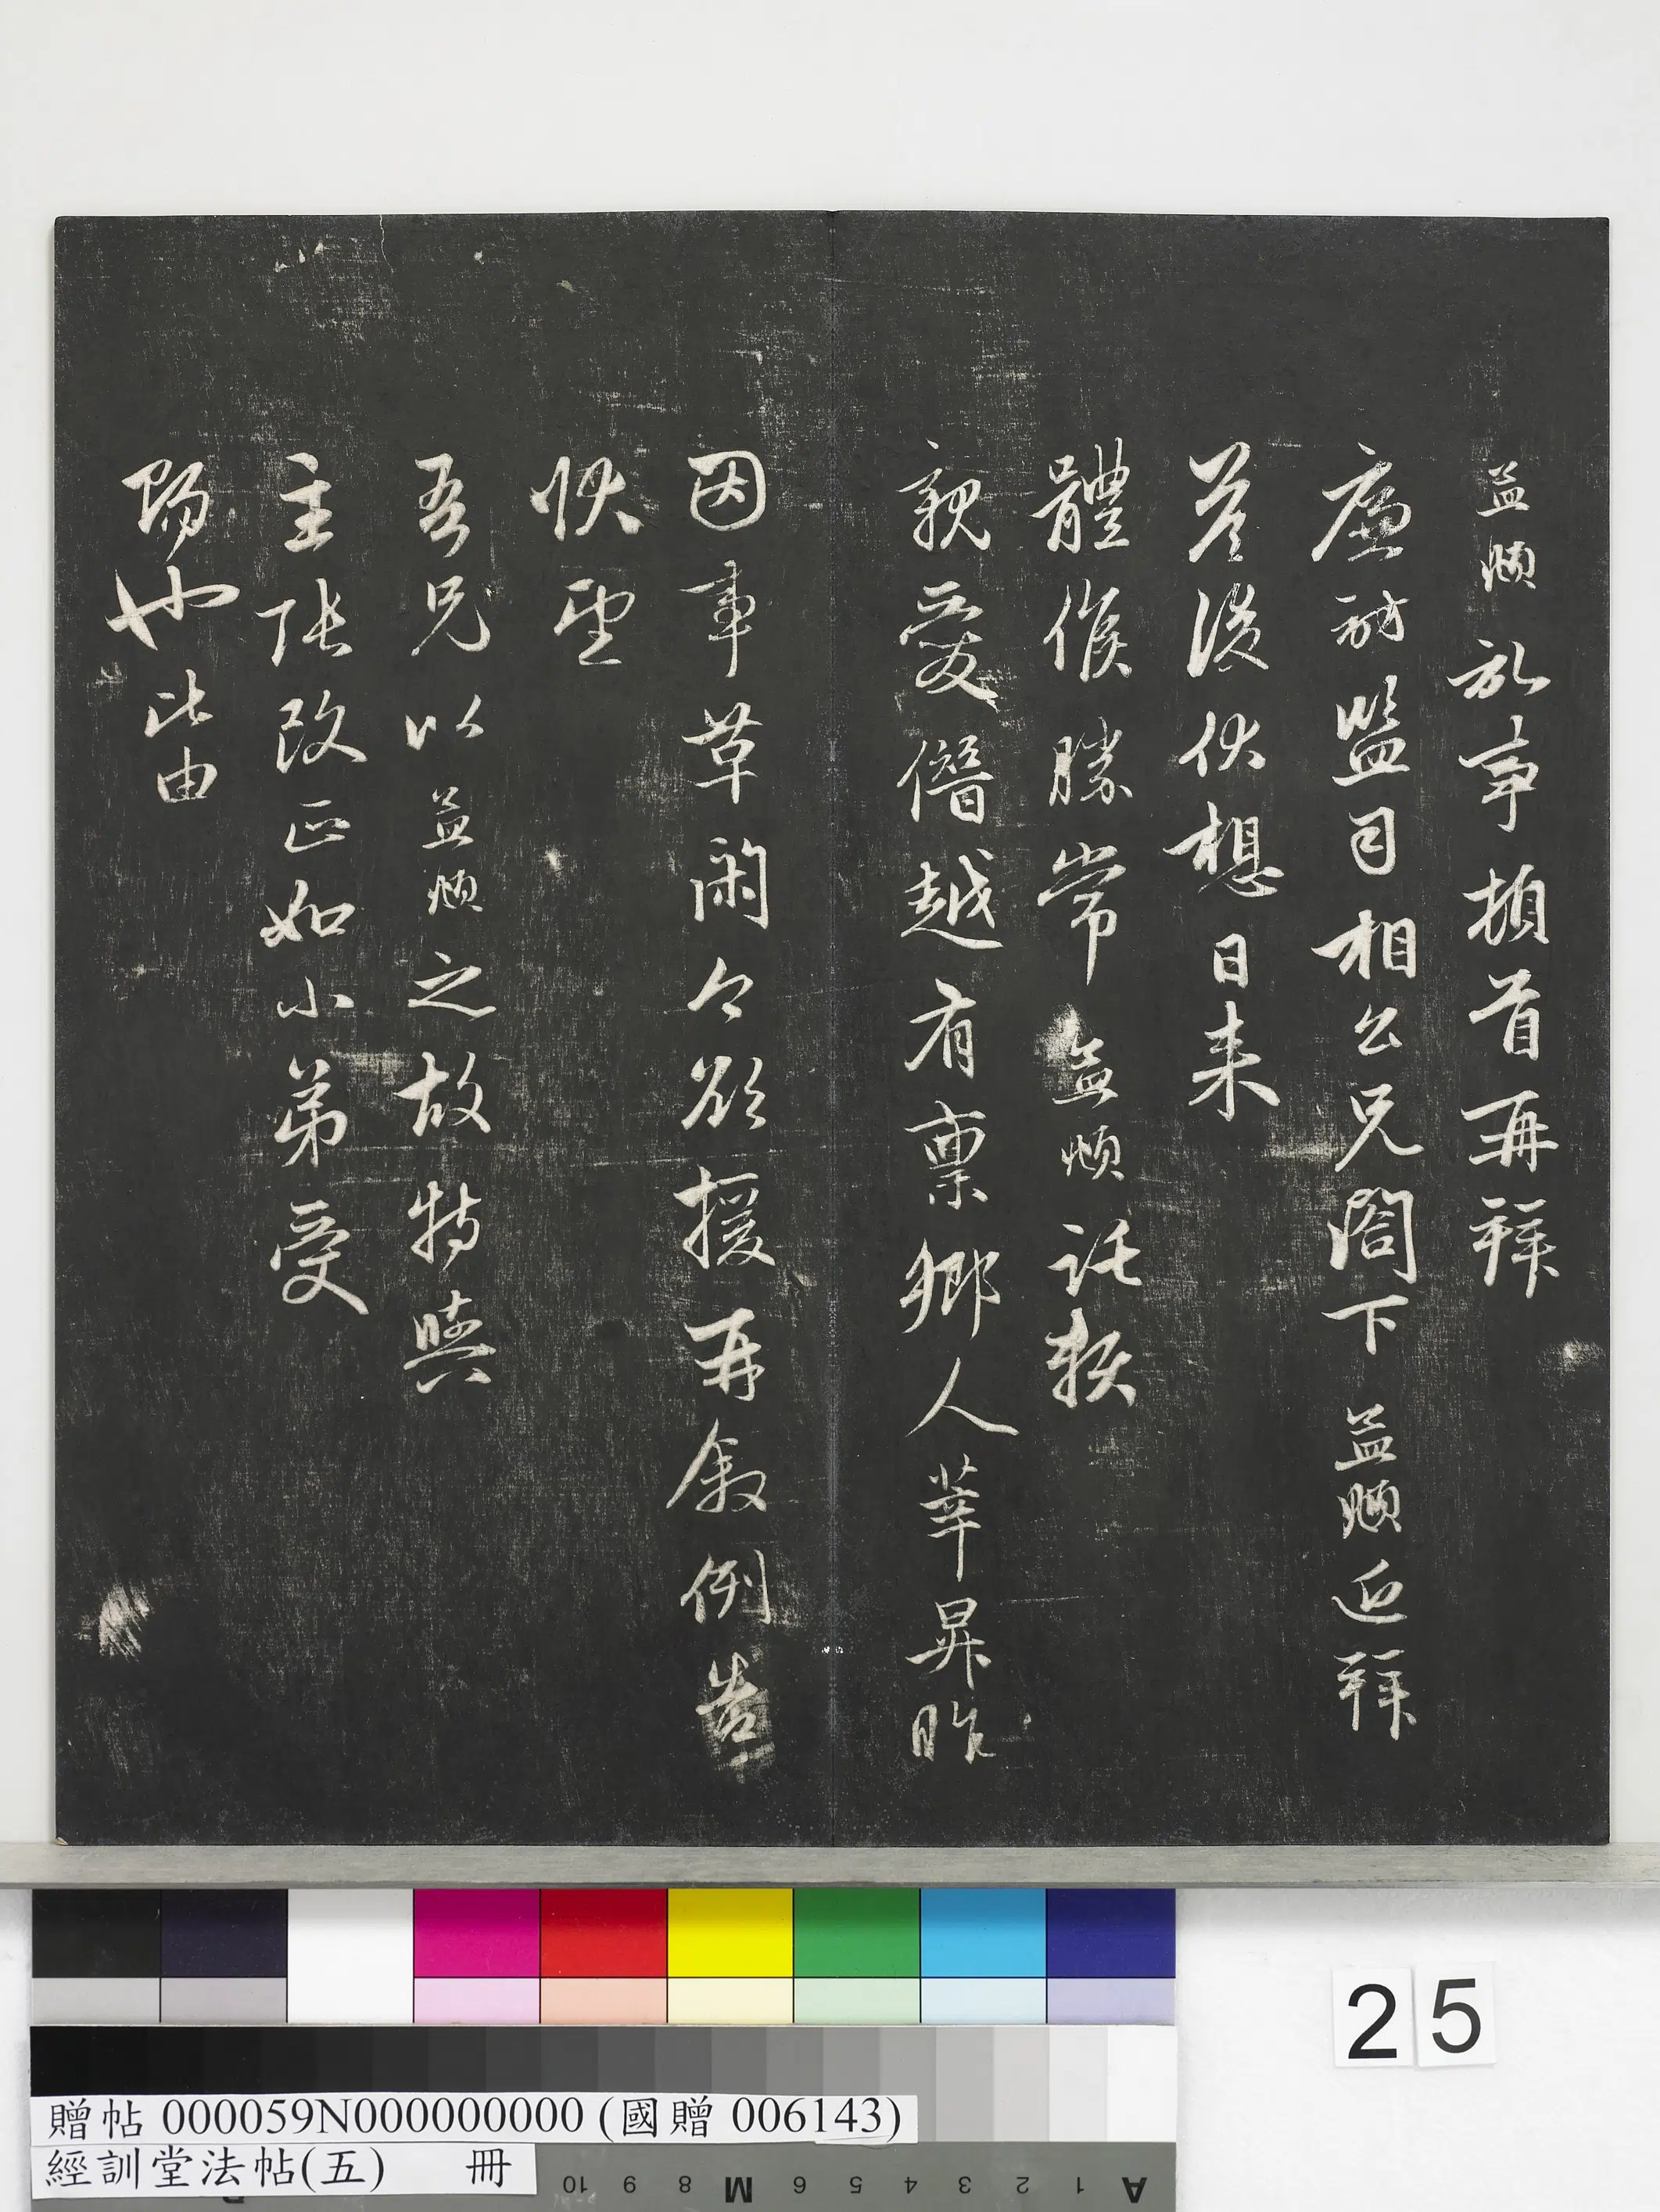 孟頫記事頓首再拜
廉訪監司相公兄閣下孟頫近拜
荅後伏想日來
體候勝常孟頫託契
親愛僭越有稟鄉人莘昇昨
因事革閑今欲援再敘例告
伏望
吾兄以孟頫之故特與
主張改正如小弟受
賜也此由
25
贈帖 000059N000000000 (國贈 006143)
經訓堂法帖(五) 冊
10 9 8 M 6 5 4 3 2 1 A